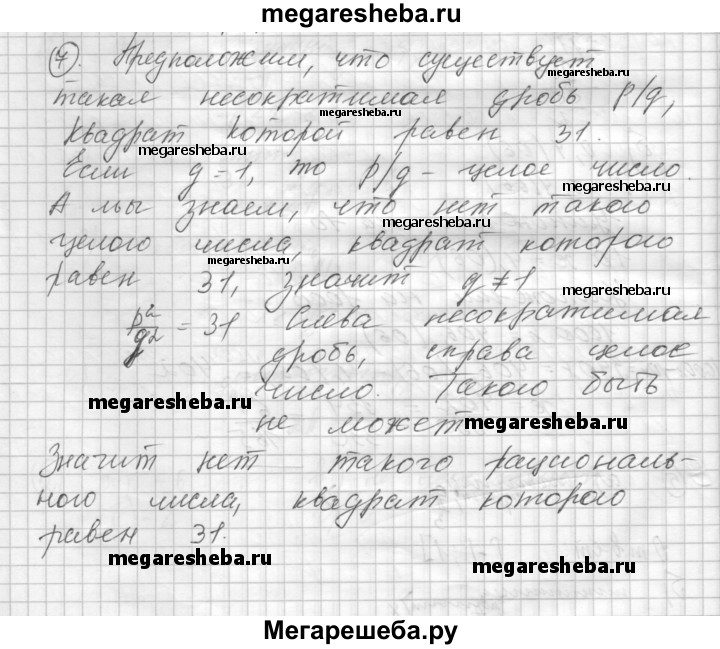 megaresheba.ru
7). Предположим, что существует
megaresheba.ru
такая несократимая дробь p/q,
megaresheba.ru
квадрат которой равен 31.
megaresheba.ru
Если q = 1, то p/q - целое число.
megaresheba.ru
А мы знаем, что нет такого
megaresheba.ru
целого числа, квадрат которого
megaresheba.ru
равен 31, значит q ≠ 1
megaresheba.ru
p²/q² = 31 Слева несократимая
дробь, справа целое
число. Такого быть
megaresheba.ru
не может
megaresheba.ru
Значит нет такого рациональ-
ного числа, квадрат которого
равен 31.
megaresheba.ru
megaresheba.ru
Мегарешеба.ру